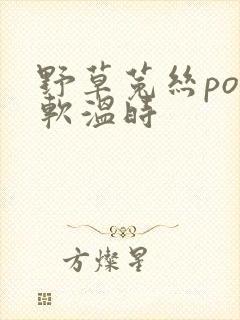 野草菟絲po
軟溫時
方燦星